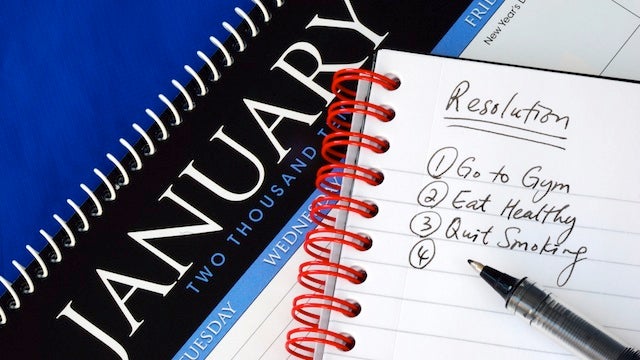 JANUARY
TWO THOUSAND TEN
TUESDAY
FRI
New Year's
Resolution
① Go to Gym
② Eat Healthy
③ Quit Smoking
④